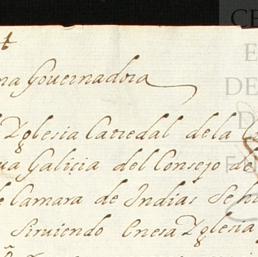 na Gouernadora
Yglesia Catredal dela
ua Galicia del Consejo de
Camara de Indias Se hi
Siruiendo Enesa Yglesia